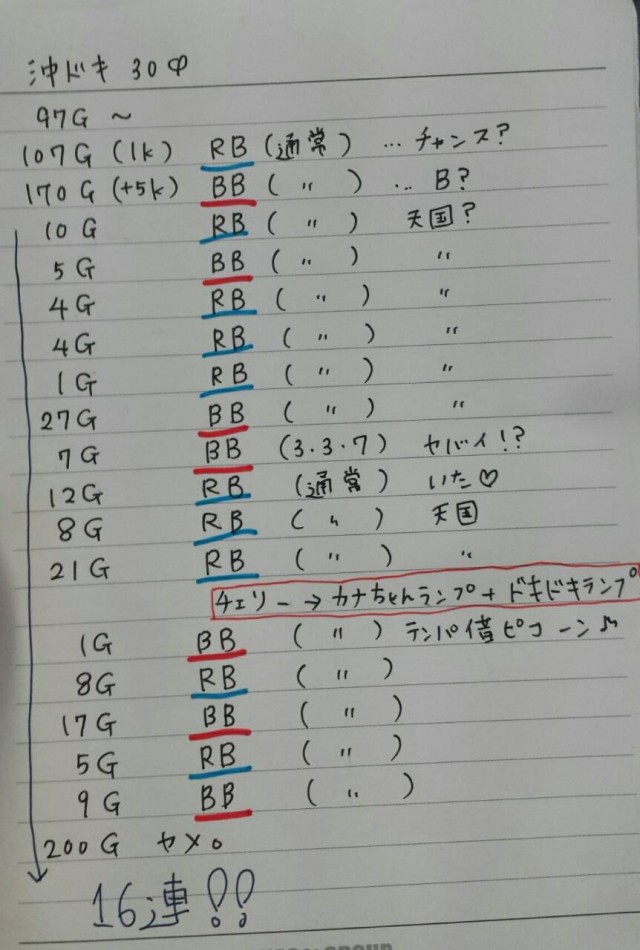 沖ドキ 30Φ
97G ～
107G (1k) RB (通常) … チャンス?
170G (+5k) BB ( 〃 ) … B?
10G RB ( 〃 ) 天国?
5G BB ( 〃 ) 〃
4G RB ( 〃 ) 〃
4G RB ( 〃 ) 〃
1G RB ( 〃 ) 〃
27G BB ( 〃 ) 〃
7G BB (3.3.7) ヤバイ!?
12G RB (通常) いた♡
8G RB ( 〃 ) 天国
21G RB ( 〃 ) 〃
チェリー → カナちゃんランプ + ドキドキランプ
1G BB ( 〃 ) テンパイ借ピコーン♪
8G RB ( 〃 )
17G BB ( 〃 )
5G RB ( 〃 )
9G BB ( 〃 )
200G ヤメ。
16連!!
GROUP